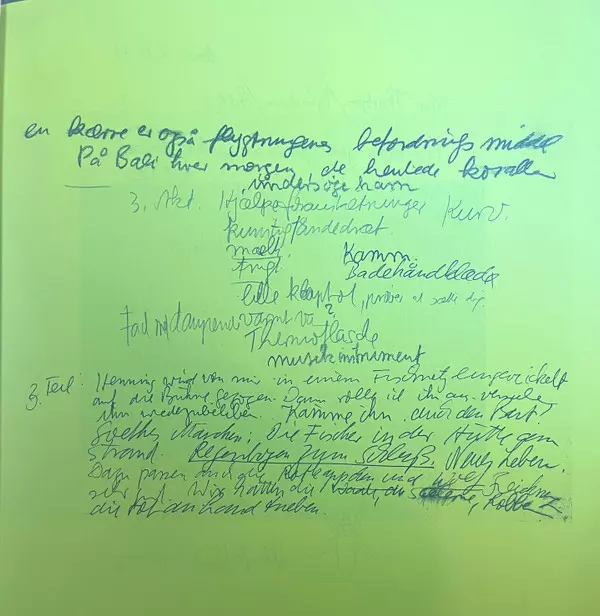 en kærre er også flygtningenes befordrings middel
På Bali hver morgen, de hentede koraller
undersøge ham
3. Akt. Hjælpeforanstaltninger Kurv.
kunstigt åndedræt.
mælk. Kamm.
Badehåndklæde
lille klaptol, prøver at
Fad med dampende varmt
?
Thermoflaske
musikinstrument
3. Teil: Henning wird von mir in einem Fischnetz eingewickelt
auf die Bühne gezogen. Dann rolle ich ihn aus. versuche
ihn wiederzubeleben. Kämme ihn, auch den Bart.
Goethes Märchen: Die Fischer in der Hütte am
Strand. Regenbogen zum Schluß. Neues Leben.
Dazu passen auch die und
sehr gut. Wir hatten die die Robbe
die tot an Land trieben.